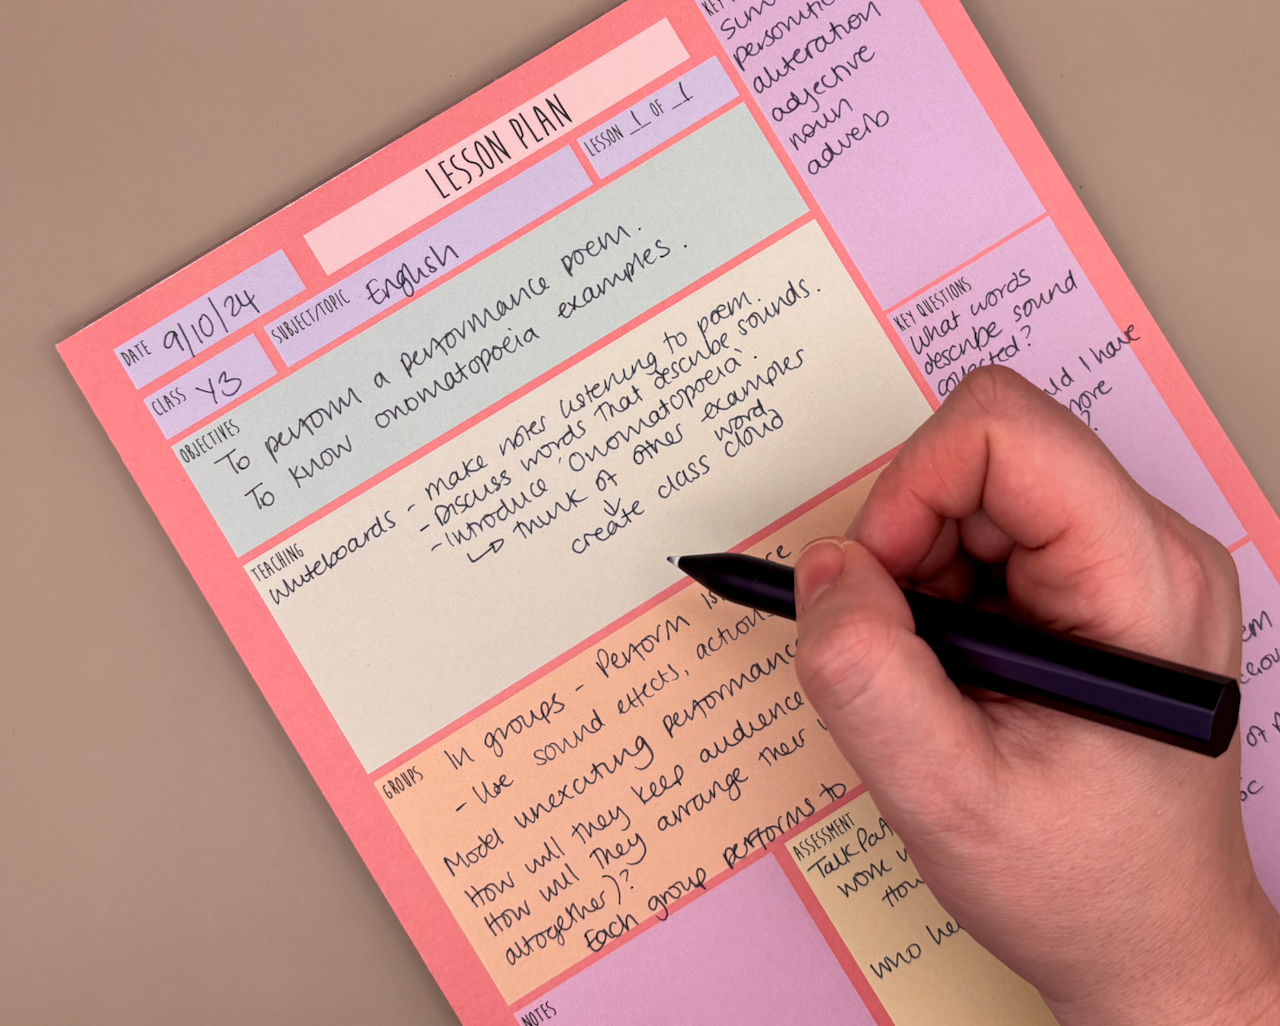 LESSON PLAN
DATE 9/10/24
SUBJECT/TOPIC English
LESSON 1 OF 1
CLASS Y3
OBJECTIVES
To perform a performance poem.
To know onomatopoeia examples.
TEACHING
Whiteboards - make notes listening to poem.
- Discuss words that describe sounds.
- Introduce 'Onomatopoeia'
↳ think of other examples
↓
create class word cloud
GROUPS
In groups - Perform
- Use sound effects, actions
Model unexciting performance
How will they keep audience
How will they arrange their
altogether)?
Each group performs to
NOTES
alliteration
adjective
noun
adverb
KEY QUESTIONS
What words
describe sound
I have
more
ASSESSMENT
work
who
of